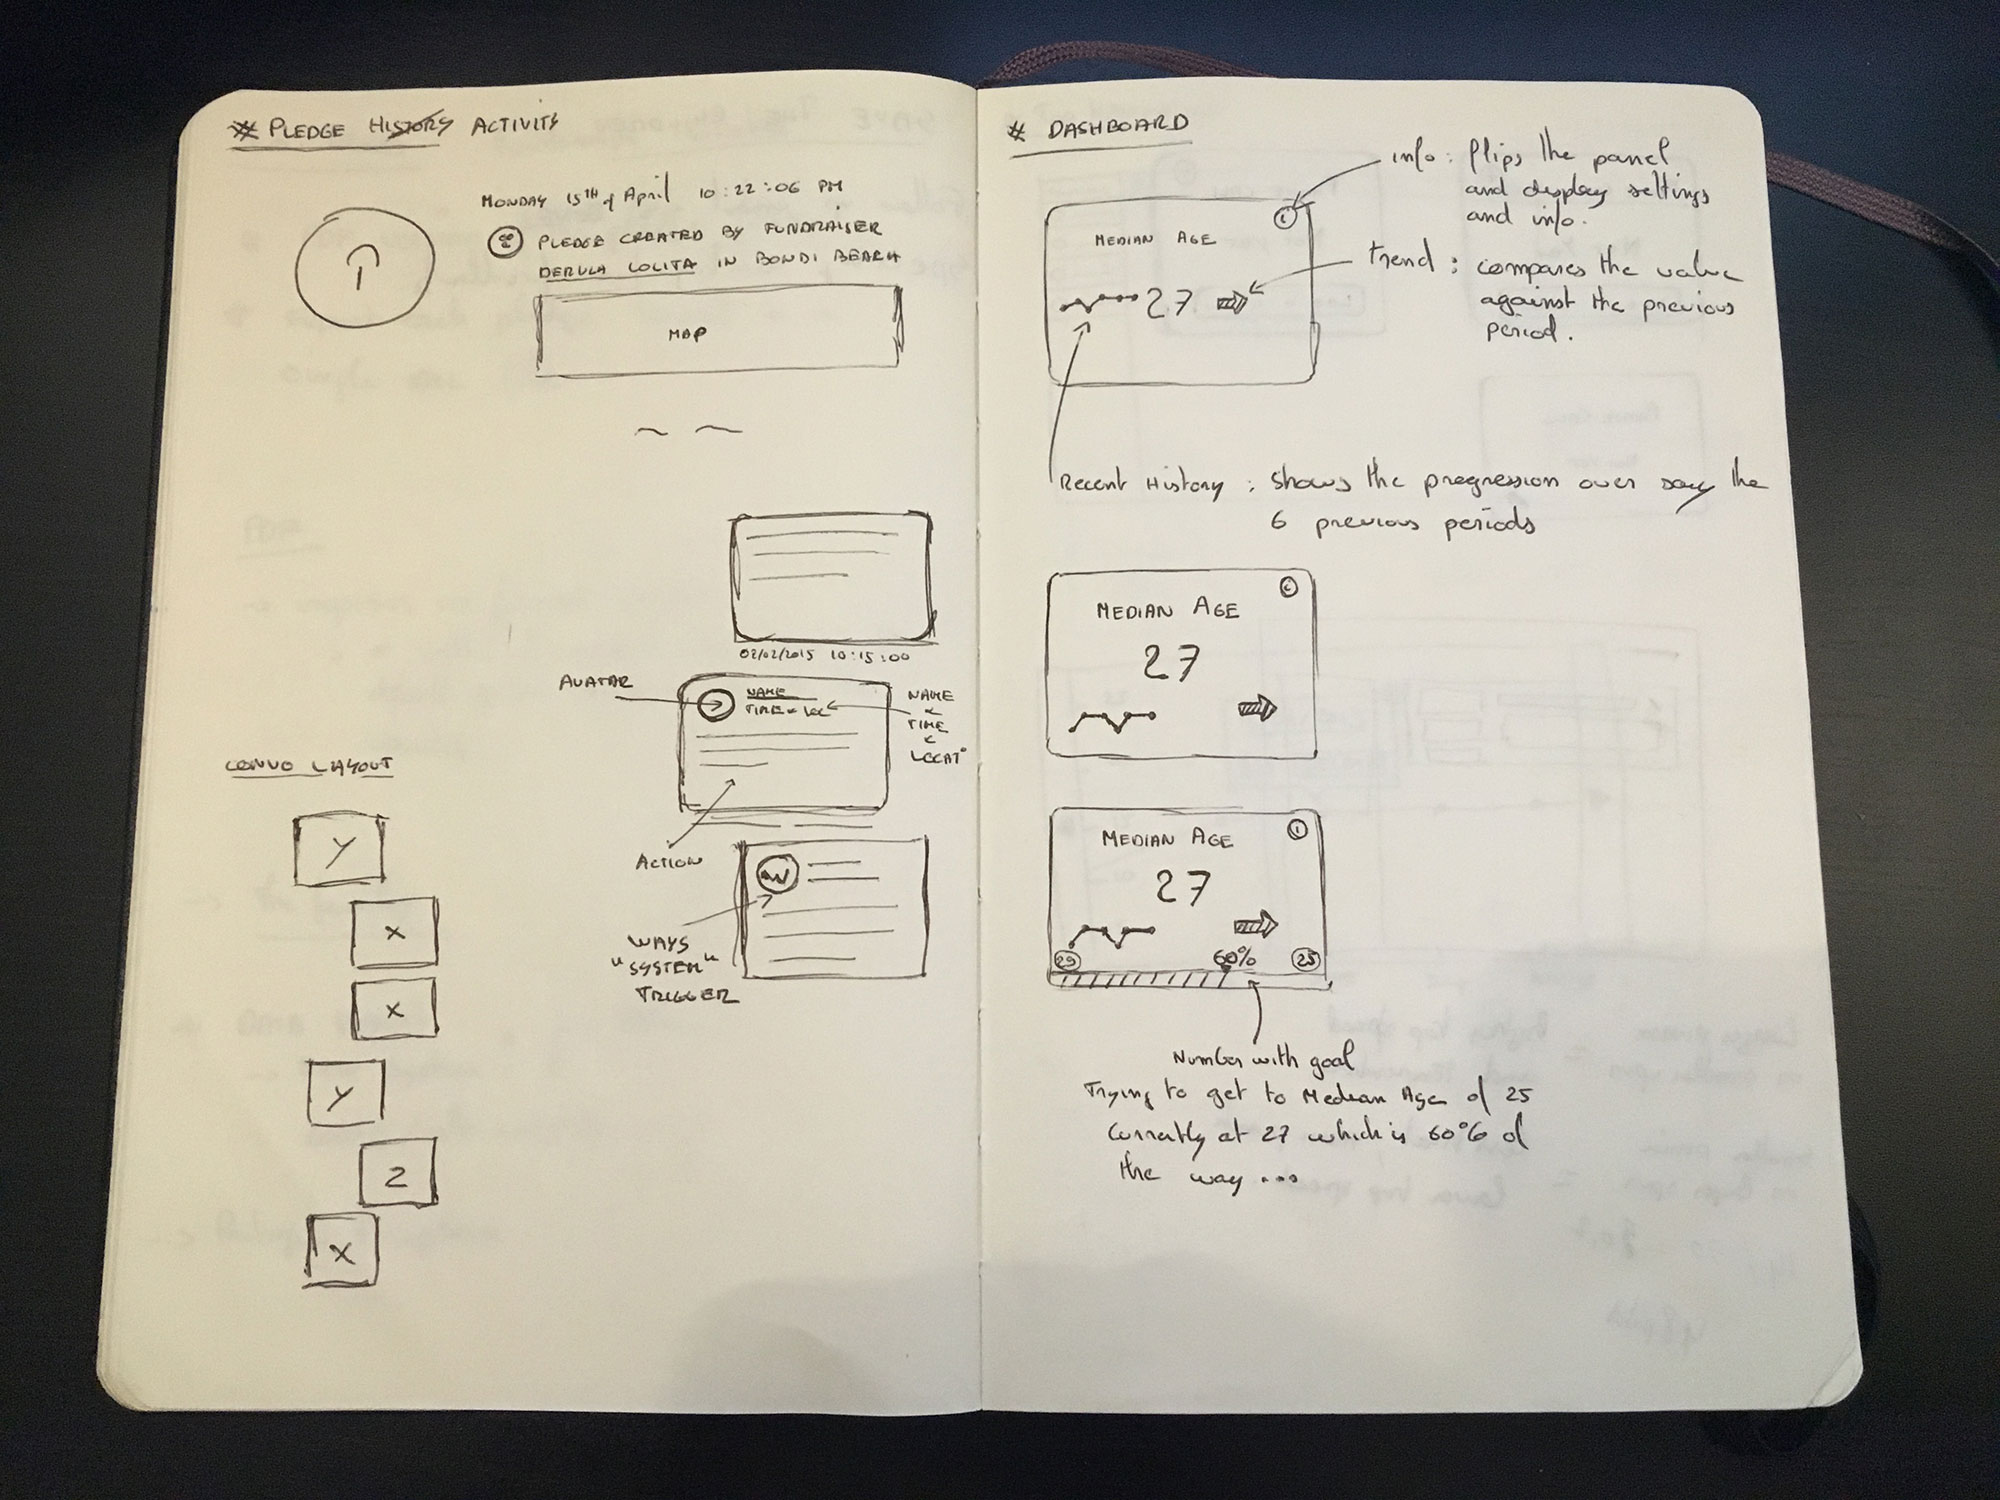 # PLEDGE HISTORY ACTIVITY
MONDAY 15TH of April 10:22:06 PM
PLEDGE CREATED BY FUNDRAISER
DERULA LOLITA IN BONDI BEACH
MAP
02/02/2015 10:15:00
AVATAR
NAME
TIME &
NAME
&
TIME
&
LOCAT°
ACTION
WAYS
"SYSTEM"
TRIGGER
CONVO LAYOUT
Y
X
X
Y
2
X
# DASHBOARD
info : flips the panel
and display settings
and info.
i
MEDIAN AGE
27
Trend : compares the value
against the previous
period.
Recent History : Shows the progression over say the
6 previous periods
i
MEDIAN AGE
27
i
MEDIAN AGE
27
29
60%
25
Number with goal
Trying to get to Median Age of 25
Currently at 27 which is 60% of
the way ...